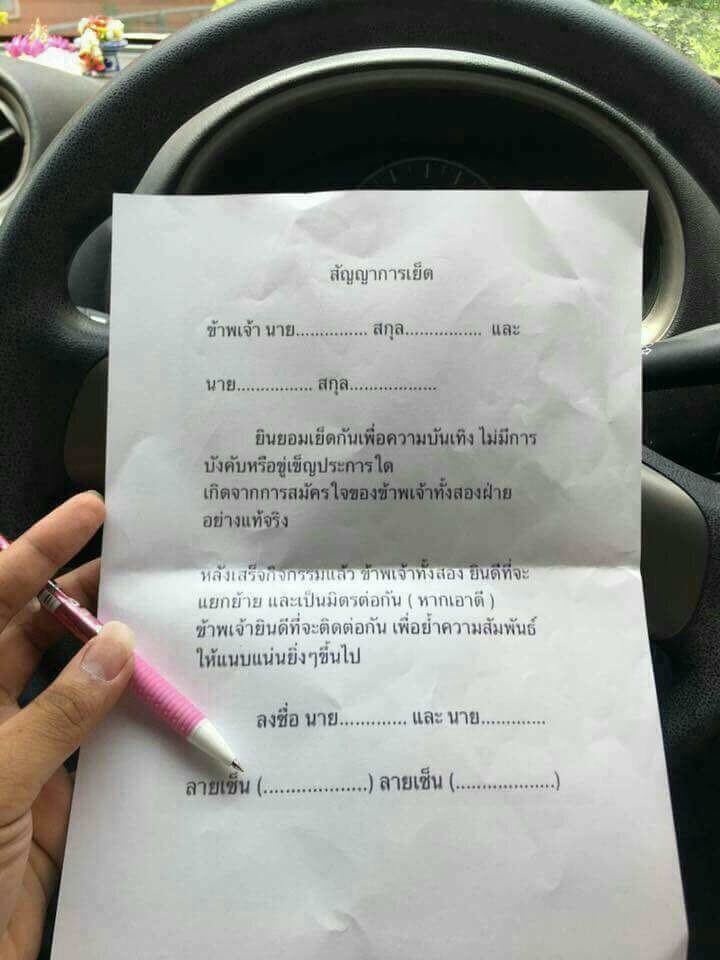 สัญญาการเย็ด
ข้าพเจ้า นาย............... สกุล................ และ
นาย................ สกุล..................
ยินยอมเย็ดกันเพื่อความบันเทิง ไม่มีการ
บังคับหรือขู่เข็ญประการใด
เกิดจากการสมัครใจของข้าพเจ้าทั้งสองฝ่าย
อย่างแท้จริง
หลังเสร็จกิจกรรมแล้ว ข้าพเจ้าทั้งสอง ยินดีที่จะ
แยกย้าย และเป็นมิตรต่อกัน ( หากเอาดี )
ข้าพเจ้ายินดีที่จะติดต่อกัน เพื่อย้ำความสัมพันธ์
ให้แนบแน่นยิ่งๆขึ้นไป
ลงชื่อ นาย............. และ นาย.............
ลายเซ็น (...................) ลายเซ็น (..................)